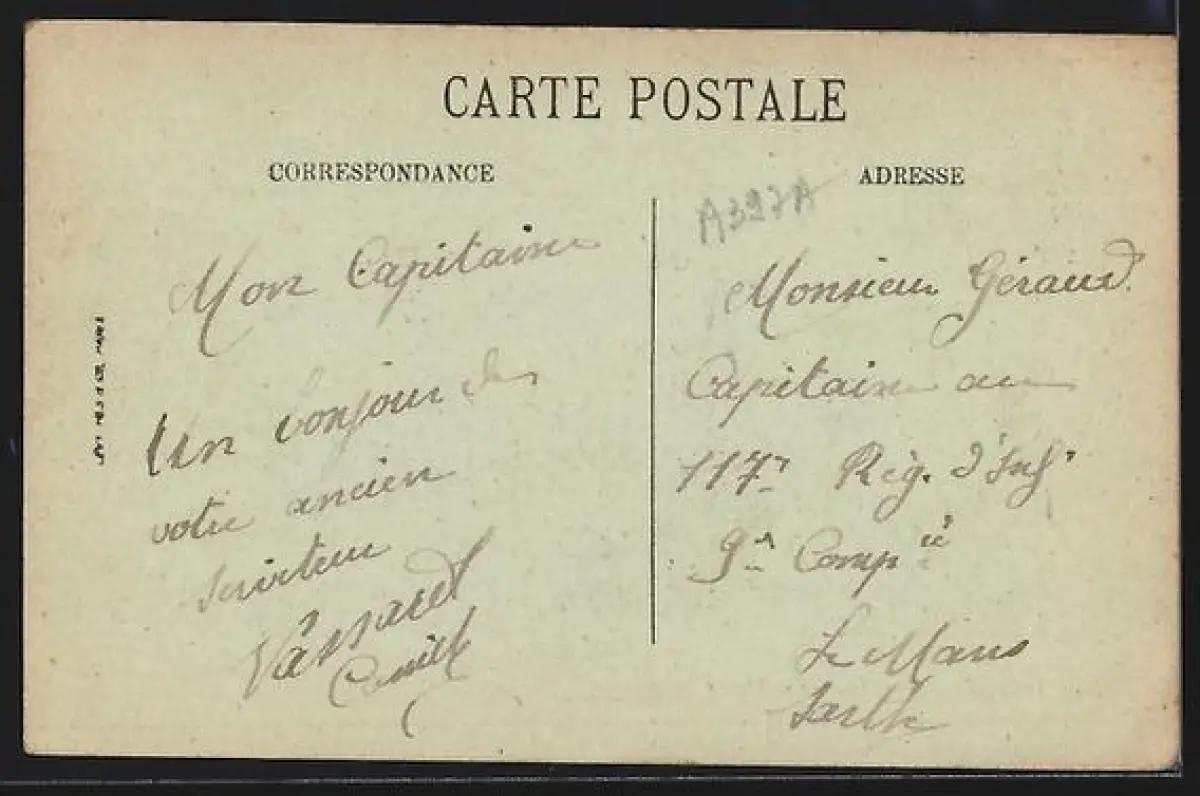 CARTE POSTALE
CORRESPONDANCE
Mon Capitaine
Un bonjour de
votre ancien
serviteur
Vassaret
ADRESSE
A397A
Monsieur Géraud.
Capitaine au
117e Rég. d'Inf.
9e Comp ie
Le Mans
Sarthe